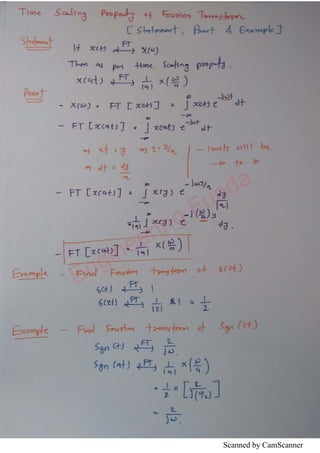 Time Scaling Property of Fourier Transform
[Statement, Proof & Example]
Statement
If x(t) ←FT→ X(ω)
Then as per time scaling property,
x(at) ←FT→ 1/|a| X(ω/a)
Proof
- X(ω) = FT [x(t)] = ∫_{-∞}^{∞} x(t) e^{-jωt} dt
- FT [x(at)] = ∫_{-∞}^{∞} x(at) e^{-jωt} dt
⇒ at = y ⇒ t = y/a | - limits will be
⇒ dt = dy/a -∞ to ∞
- FT [x(at)] = ∫_{-∞}^{∞} x(y) e^{-jωy/a} dy/|a|
= 1/|a| ∫_{-∞}^{∞} x(y) e^{-j(ω/a)y} dy.
- FT [x(at)] = 1/|a| X(ω/a)
Engineering Funda
Example - Find Fourier transform of δ(2t)
δ(t) ←FT→ 1
δ(2t) ←FT→ 1/|2| × 1 = 1/2
Example - Find Fourier transform of Sgn (2t)
Sgn (t) ←FT→ 2/jω.
Sgn (at) ←FT→ 1/|a| X(ω/a)
= 1/2 × [2/j(ω/2)]
= 2/jω.
Scanned by CamScanner